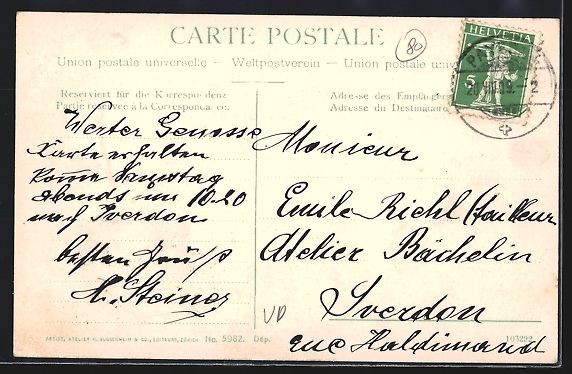 CARTE POSTALE
80
Union postale universelle – Weltpostverein – Union postale
HELVETIA
5
Reserviert für die Korrespondenz
Partie réservée à la Correspondance
Adresse des Empfängers
Adresse du Destinataire
Werter Genosse
Karte erhalten
Komme Samstag
abends um 10.20
nach Yverdon
besten Gruß
H. Steiner
Monsieur
Emile Richl (tailleur
Atelier Bächelin
Yverdon
rue Haldimand
VD
ARTIST. ATELIER H. GUGGENHEIM & CO., EDITEURS, ZÜRICH No. 5982. Dép.
103292